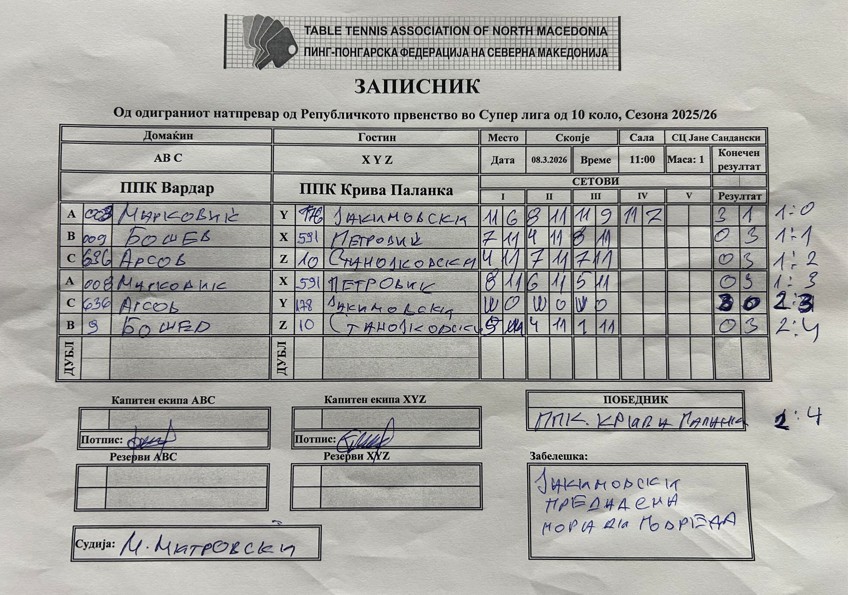 TABLE TENNIS ASSOCIATION OF NORTH MACEDONIA
ПИНГ-ПОНГАРСКА ФЕДЕРАЦИЈА НА СЕВЕРНА МАКЕДОНИЈА
ЗАПИСНИК
Од одиграниот натпревар од Републичкото првенство во Супер лига од 10 коло, Сезона 2025/26
Домаќин Гостин Место Скопје Сала СЦ Јане Сандански
A B C X Y Z Дата 08.3.2026 Време 11:00 Маса: 1 Конечен резултат
ППК Вардар ППК Крива Паланка СЕТОВИ
I II III IV V Резултат
A 008 Марковиќ Y 178 Јакимовски 11 6 8 11 11 9 11 7 3 1 1:0
B 009 Бошев X 591 Петровиќ 7 11 4 11 8 11 0 3 1:1
C 636 Арсов Z 10 Станојковски 4 11 7 11 7 11 0 3 1:2
A 008 Марковиќ X 591 Петровиќ 8 11 6 11 5 11 0 3 1:3
C 636 Арсов Y 178 Јакимовски W 0 W 0 W 0 3 0 2:3
B 9 Бошев Z 10 Станојковски 4 11 1 11 0 3 2:4
ДУБЛ ДУБЛ
Капитен екипа ABC Капитен екипа XYZ ПОБЕДНИК
ППК. Крива Паланка 2:4
Потпис: Потпис:
Резерви ABC Резерви XYZ Забелешка:
Јакимовски
предадена
поради повреда
Судија: М. Митровски